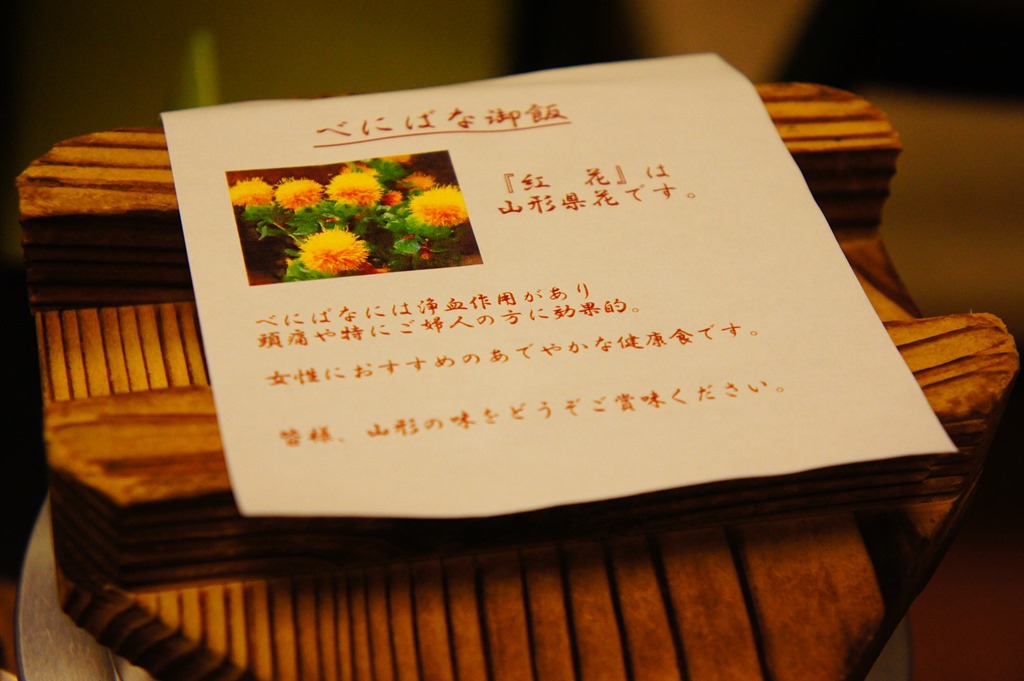 べにばな御飯
『紅　花』は
山形県花です。
べにばなには浄血作用があり
頭痛や特にご婦人の方に効果的。
女性におすすめのあでやかな健康食です。
皆様、山形の味をどうぞご賞味ください。